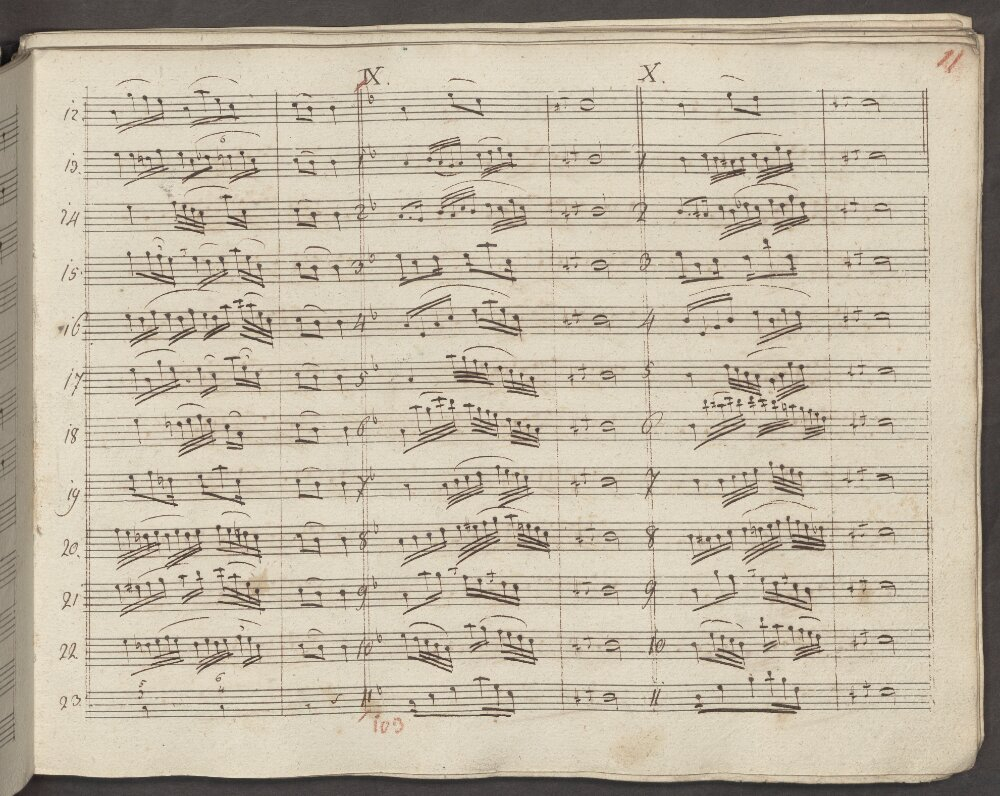 IX. X. 11
12
13. 6 1 1
14 2 2
15. 3 3
16 4 4
17 5 5
18 6 6
19 7 7
20. 8 8
21 9 9
22 10 10
23. 5 3 6 4 11 11
109